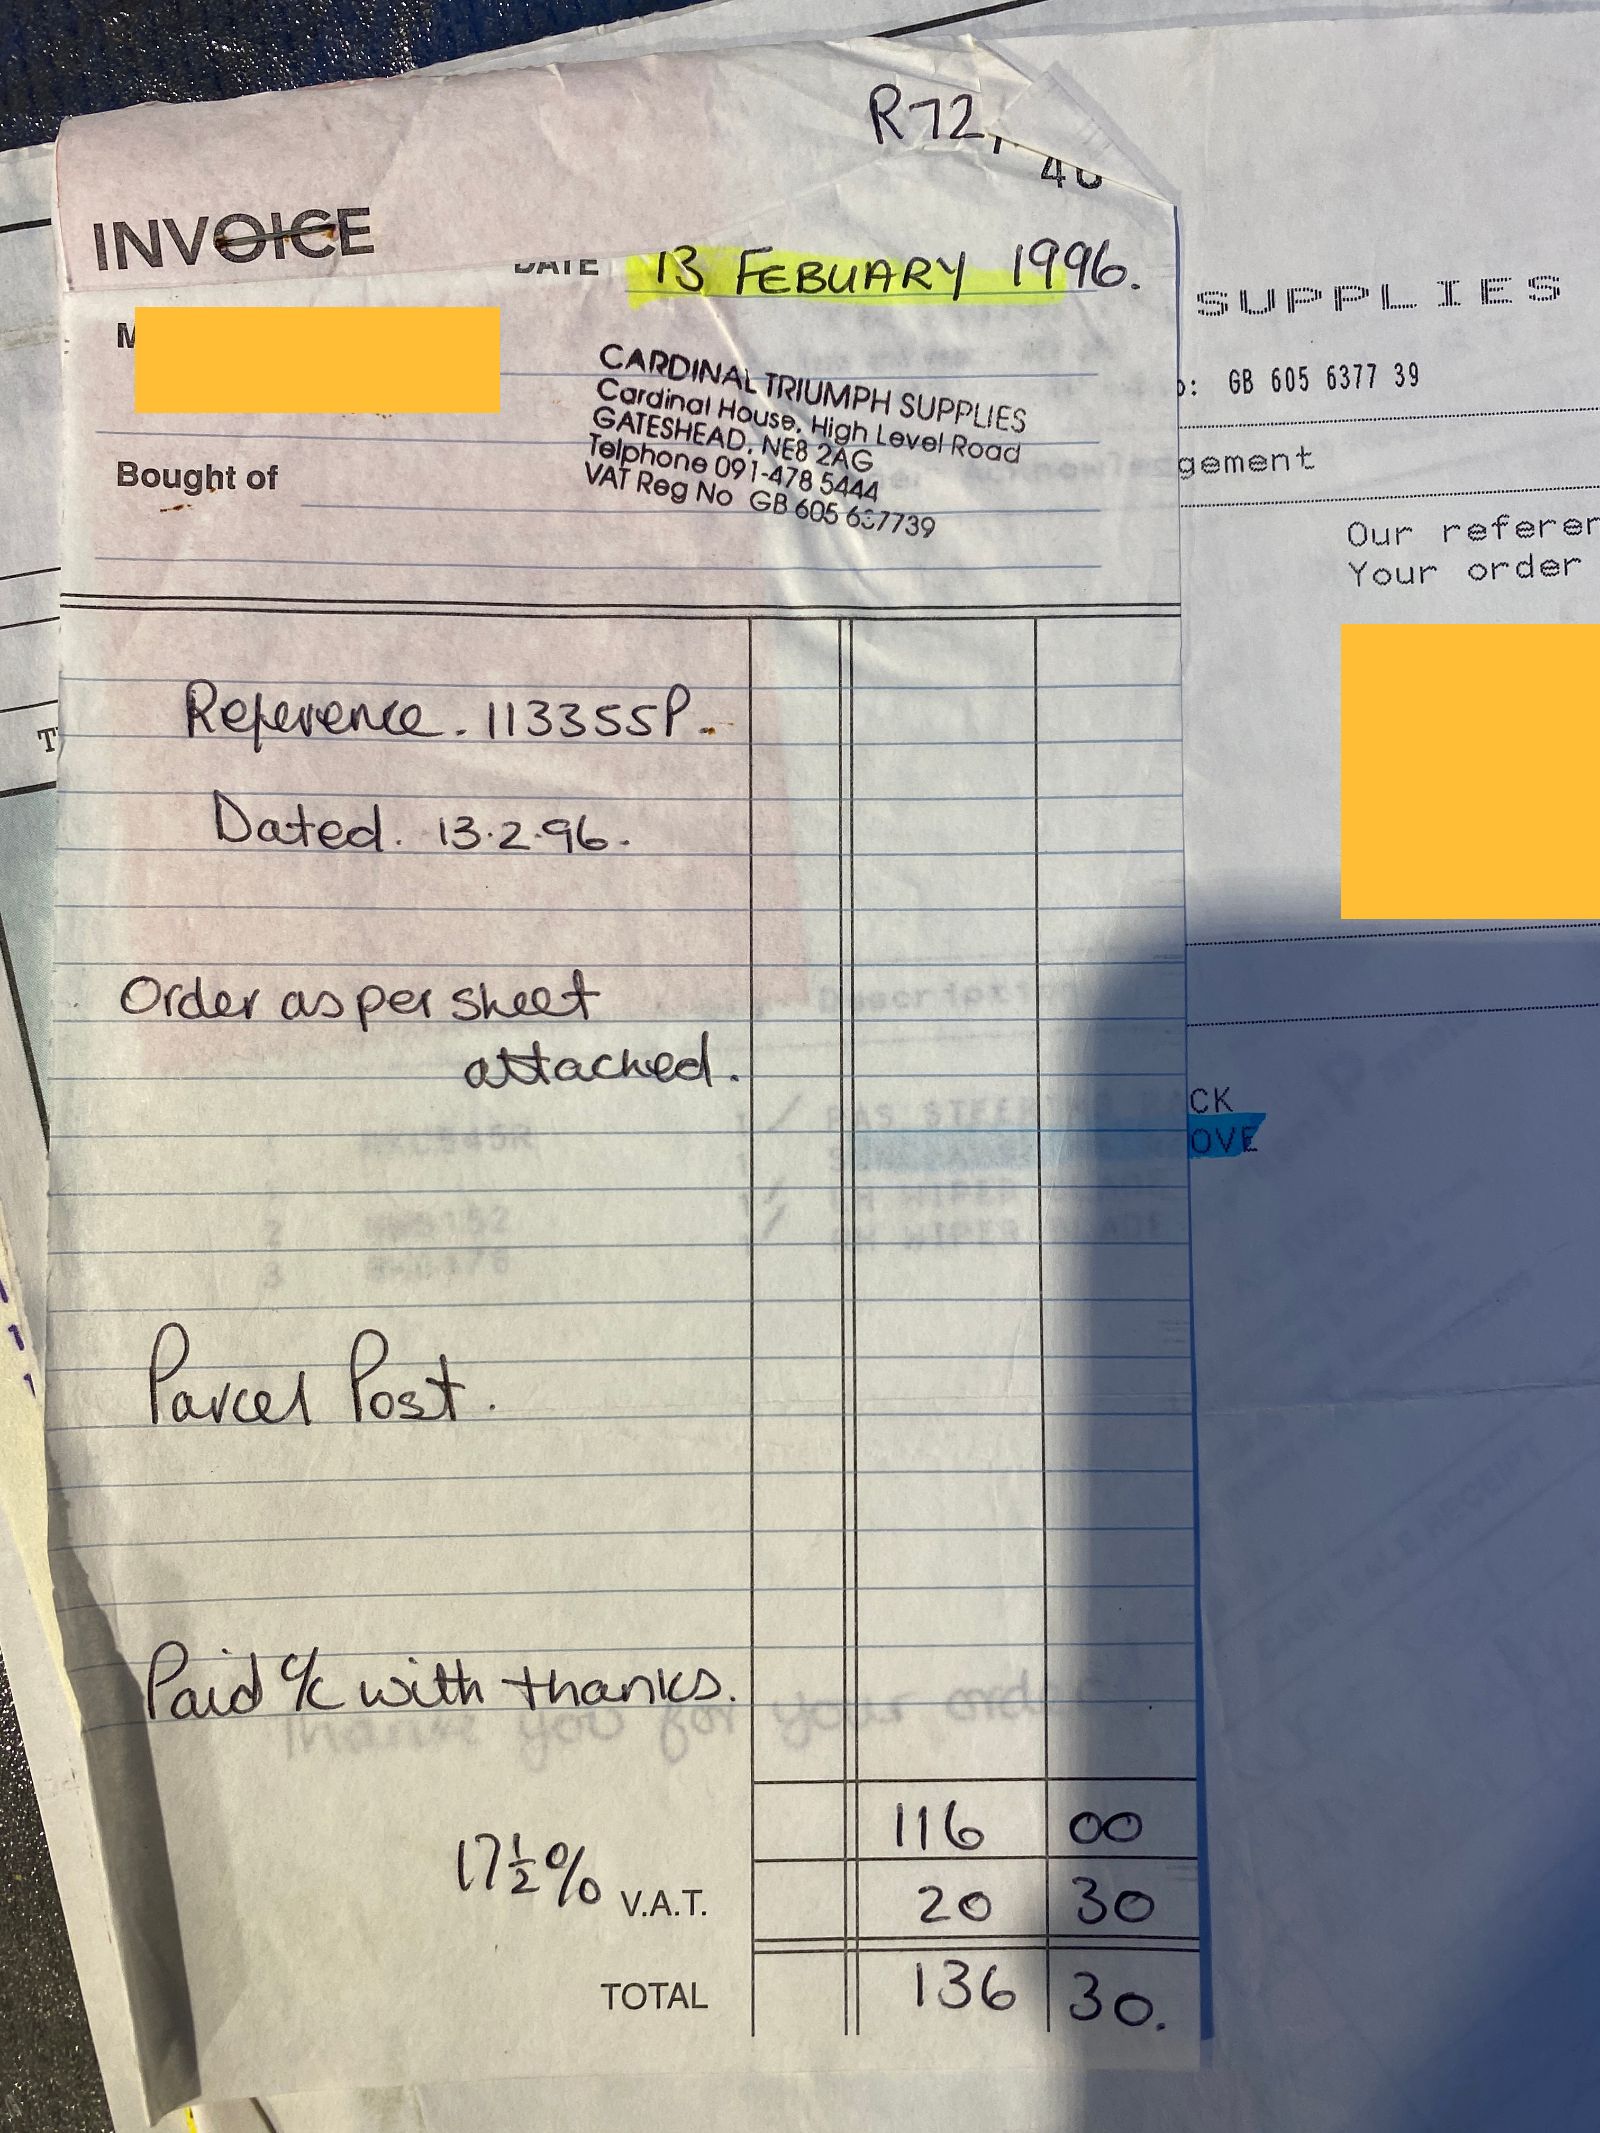 R72
INVOICE
DATE 13 FEBUARY 1996.
CARDINAL TRIUMPH SUPPLIES
Cardinal House, High Level Road
GATESHEAD, NE8 2AG
Telphone 091-478 5444
VAT Reg No GB 605 637739
Bought of
Reference. 113355P.
Dated. 13.2.96.
Order as per sheet
attached.
Parcel Post.
Paid c/c with thanks.
Thank you for your order
116 00
17½% V.A.T. 20 30
TOTAL 136 30.
SUPPLIES
GB 605 6377 39
gement
Our referen
Your order
CK
OVE